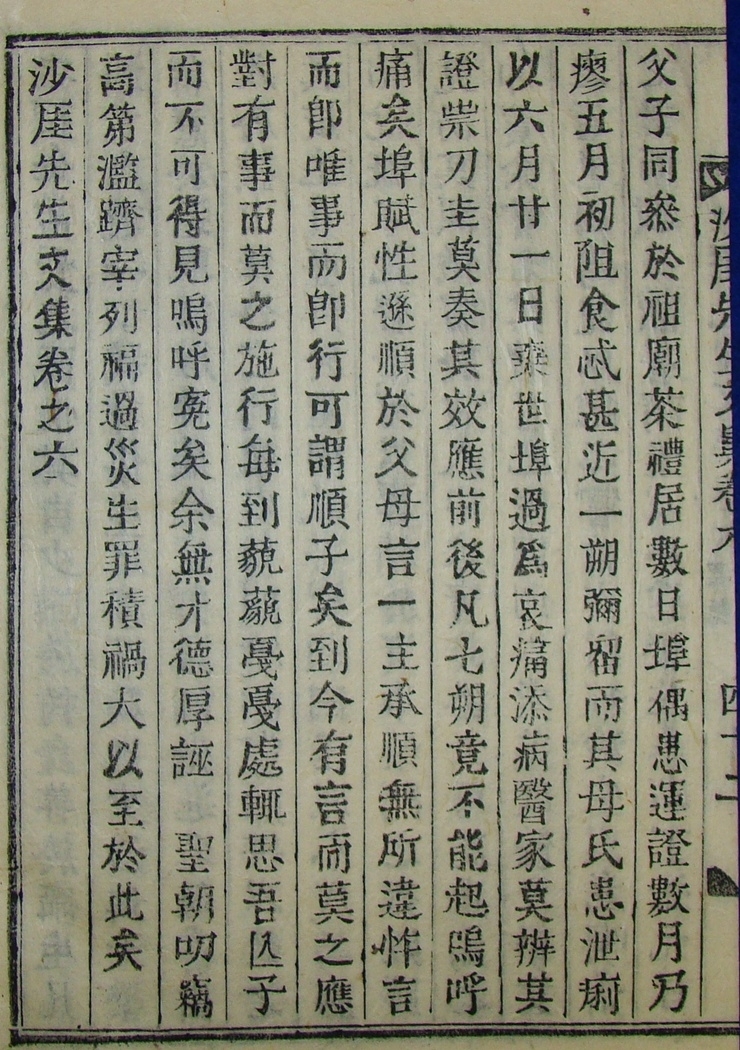 沙厓先生文集卷六
四十二
父子同叅於祖廟茶禮居數日埠偶患運證數月乃
瘳五月初阻食忒甚近一朔彌留而其母氏患泄痢
以六月廿一日棄世埠過爲哀痛添病醫家莫辨其
證祟刀圭莫奏其效應前後凡七朔竟不能起嗚呼
痛矣埠賦性遜順於父母言一主承順無所違怍言
而卽唯事而卽行可謂順子矣到今有言而莫之應
對有事而莫之施行每到藐藐戞戞處輒思吾亾子
而不可得見嗚呼寃矣余無才德厚誣 聖朝叨竊
高第濫躋宰列福過災生罪積禍大以至於此矣
沙厓先生文集卷之六